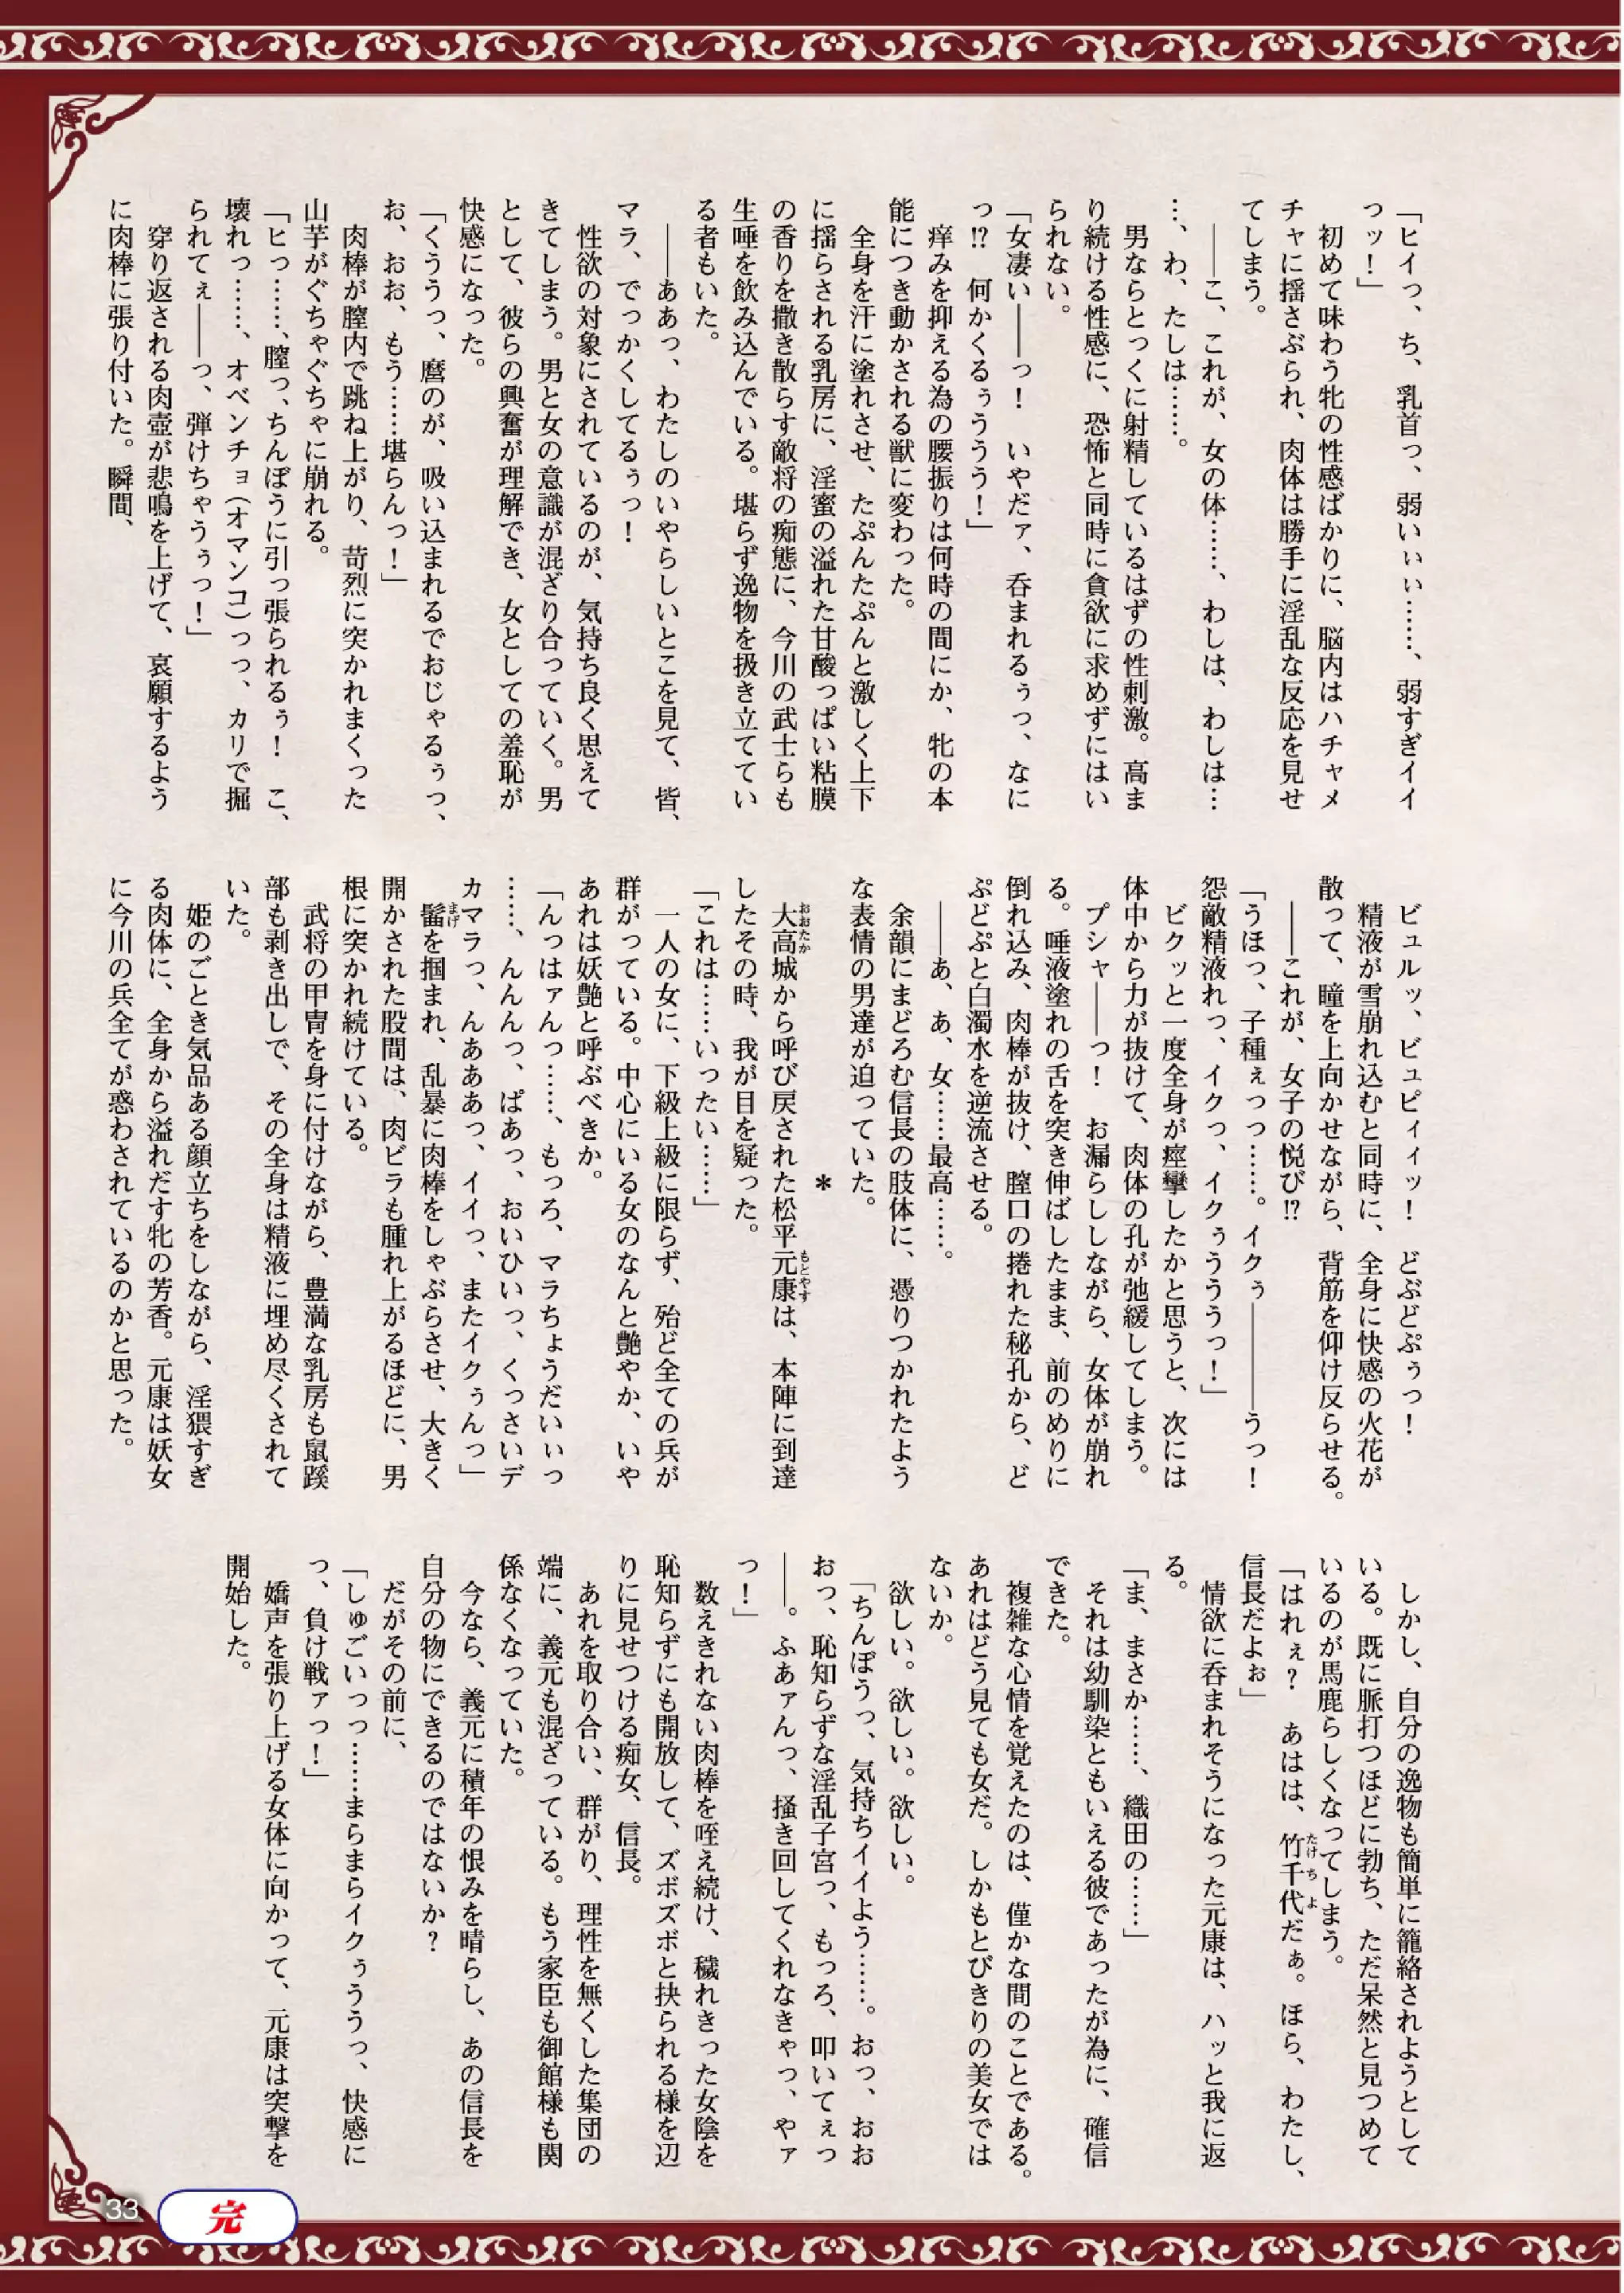 「ヒイっ、ち、乳首っ、弱いぃぃ……、弱すぎイイ
っッ！」
初めて味わう牝の性感ばかりに、脳内はハチャメ
チャに揺さぶられ、肉体は勝手に淫乱な反応を見せ
てしまう。
――こ、これが、女の体……、わしは、わしは…
…、わ、たしは……。
男ならとっくに射精しているはずの性刺激。高ま
り続ける性感に、恐怖と同時に貪欲に求めずにはい
られない。
「女凄い――っ！　いやだァ、呑まれるぅっ、なに
っ!?　何かくるぅううう！」
痒みを抑える為の腰振りは何時の間にか、牝の本
能につき動かされる獣に変わった。
全身を汗に塗れさせ、たぷんたぷんと激しく上下
に揺らされる乳房に、淫蜜の溢れた甘酸っぱい粘膜
の香りを撒き散らす敵将の痴態に、今川の武士らも
生唾を飲み込んでいる。堪らず逸物を扱き立ててい
る者もいた。
――ああっ、わたしのいやらしいとこを見て、皆、
マラ、でっかくしてるぅっ！
性欲の対象にされているのが、気持ち良く思えて
きてしまう。男と女の意識が混ざり合っていく。男
として、彼らの興奮が理解でき、女としての羞恥が
快感になった。
「くううっ、麿のが、吸い込まれるでおじゃるぅっ、
お、おお、もう……堪らんっ！」
肉棒が膣内で跳ね上がり、苛烈に突かれまくった
山芋がぐちゃぐちゃに崩れる。
「ヒっ……、膣っ、ちんぽうに引っ張られるぅ！　こ、
壊れっ……、オベンチョ（オマンコ）っっ、カリで掘
られてぇ――っ、弾けちゃうぅっ！」
穿り返される肉壺が悲鳴を上げて、哀願するよう
に肉棒に張り付いた。瞬間、
ビュルッ、ビュピィィッ！　どぷどぷぅっ！
精液が雪崩れ込むと同時に、全身に快感の火花が
散って、瞳を上向かせながら、背筋を仰け反らせる。
――これが、女子の悦び!?
「うほっ、子種ぇっっ……。イクぅ――――うっ！
怨敵精液れっ、イクっ、イクぅうううっ！」
ビクッと一度全身が痙攣したかと思うと、次には
体中から力が抜けて、肉体の孔が弛緩してしまう。
プシャ――っ！　お漏らししながら、女体が崩れ
る。唾液塗れの舌を突き伸ばしたまま、前のめりに
倒れ込み、肉棒が抜け、膣口の捲れた秘孔から、ど
ぷどぷと白濁水を逆流させる。
――あ、あ、女……最高……。
余韻にまどろむ信長の肢体に、憑りつかれたよう
な表情の男達が迫っていた。
＊
大高（おおたか）城から呼び戻された松平元康（もとやす）は、本陣に到達
したその時、我が目を疑った。
「これは……いったい……」
一人の女に、下級上級に限らず、殆ど全ての兵が
群がっている。中心にいる女のなんと艶やか、いや
あれは妖艶と呼ぶべきか。
「んっはァんっ……、もっろ、マラちょうだいぃっ
……、んんんっ、ぱあっ、おいひいっ、くっさいデ
カマラっ、んあああっ、イイっ、またイクぅんっ」
髷（まげ）を掴まれ、乱暴に肉棒をしゃぶらさせ、大きく
開かされた股間は、肉ビラも腫れ上がるほどに、男
根に突かれ続けている。
武将の甲冑を身に付けながら、豊満な乳房も鼠蹊
部も剥き出しで、その全身は精液に埋め尽くされて
いた。
姫のごとき気品ある顔立ちをしながら、淫猥すぎ
る肉体に、全身から溢れだす牝の芳香。元康は妖女
に今川の兵全てが惑わされているのかと思った。
しかし、自分の逸物も簡単に籠絡されようとして
いる。既に脈打つほどに勃ち、ただ呆然と見つめて
いるのが馬鹿らしくなってしまう。
「はれぇ？　あはは、竹千代（たけちよ）だぁ。ほら、わたし、
信長だよぉ」
情欲に呑まれそうになった元康は、ハッと我に返
る。
「ま、まさか……、織田の……」
それは幼馴染ともいえる彼であったが為に、確信
できた。
複雑な心情を覚えたのは、僅かな間のことである。
あれはどう見ても女だ。しかもとびきりの美女では
ないか。
欲しい。欲しい。欲しい。
「ちんぽうっ、気持ちイイよう……。おっ、おお
おっ、恥知らずな淫乱子宮っ、もっろ、叩いてぇっ
――。ふあァんっ、掻き回してくれなきゃっ、やァ
っ！」
数えきれない肉棒を咥え続け、穢れきった女陰を
恥知らずにも開放して、ズボズボと抉られる様を辺
りに見せつける痴女、信長。
あれを取り合い、群がり、理性を無くした集団の
端に、義元も混ざっている。もう家臣も御館様も関
係なくなっていた。
今なら、義元に積年の恨みを晴らし、あの信長を
自分の物にできるのではないか？
だがその前に、
「しゅごいっっ……まらまらイクぅううっ、快感に
っ、負け戦ァっ！」
嬌声を張り上げる女体に向かって、元康は突撃を
開始した。
33
完